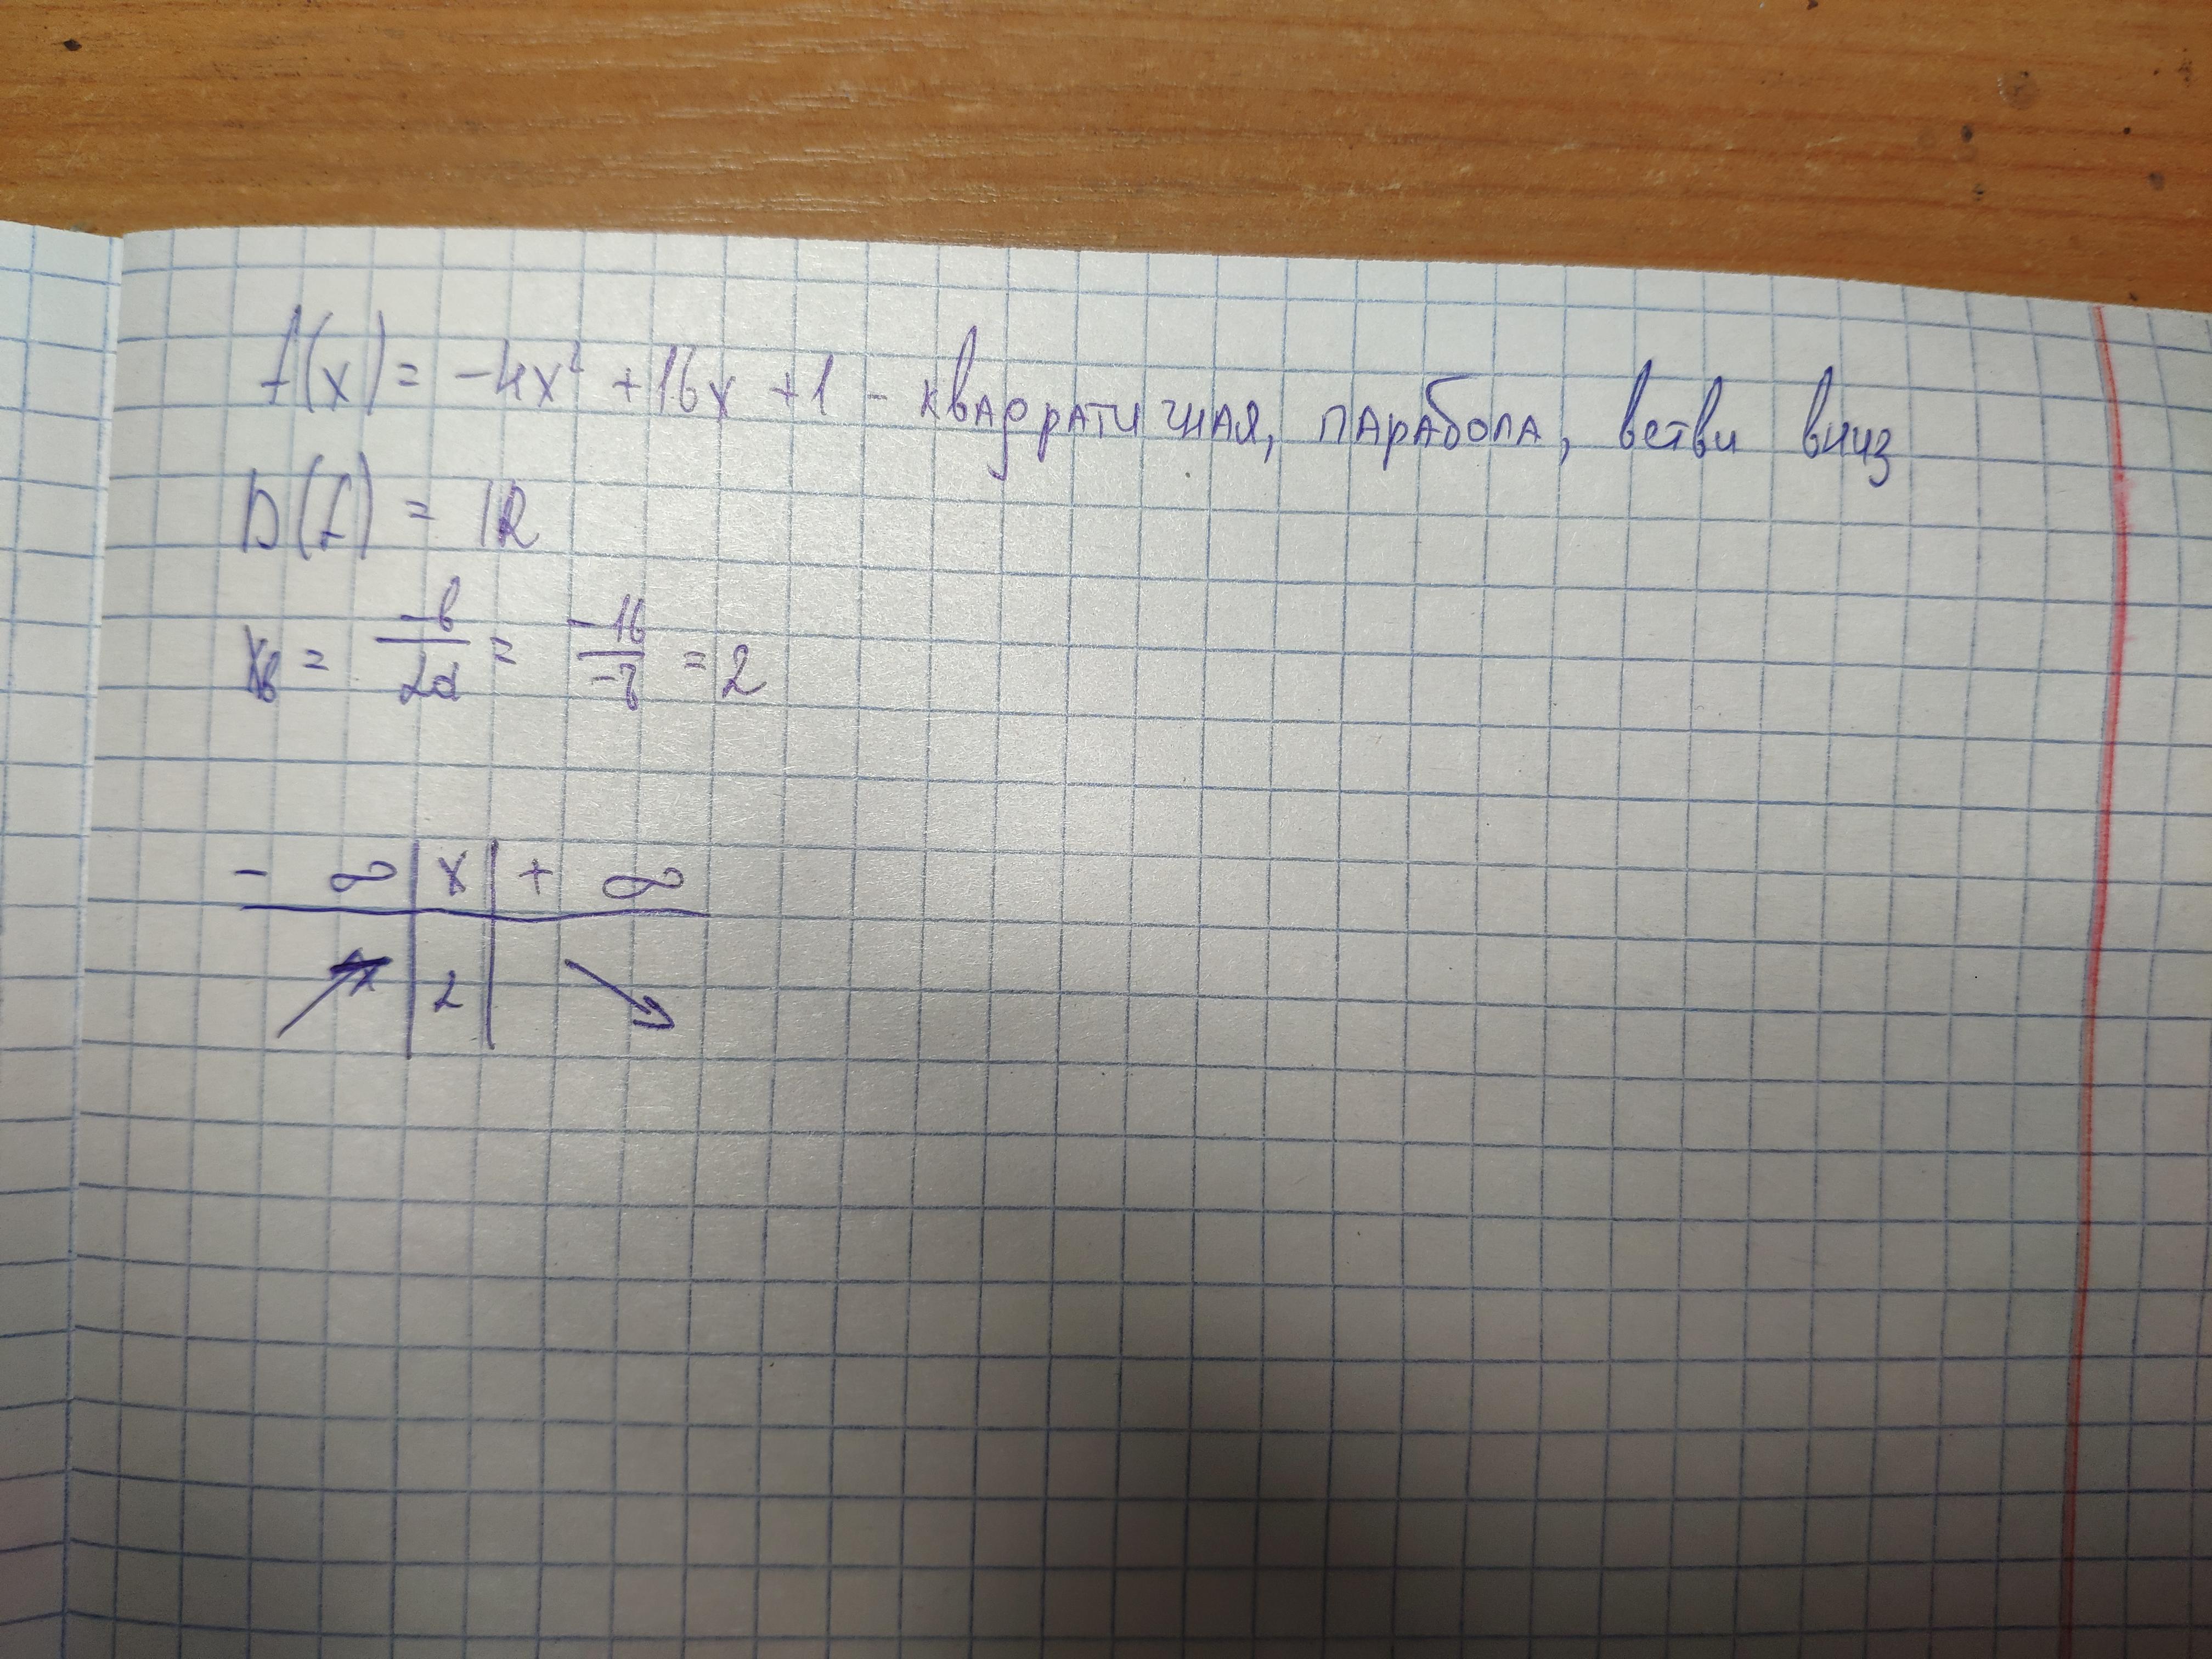 f(x) = -4x² + 16x + 1 - квадратичная, парабола, ветви вниз
D(f) = ℝ
xв = -b/2a = -16/-8 = 2
- ∞ | x | + ∞
↗ | 2 | ↘